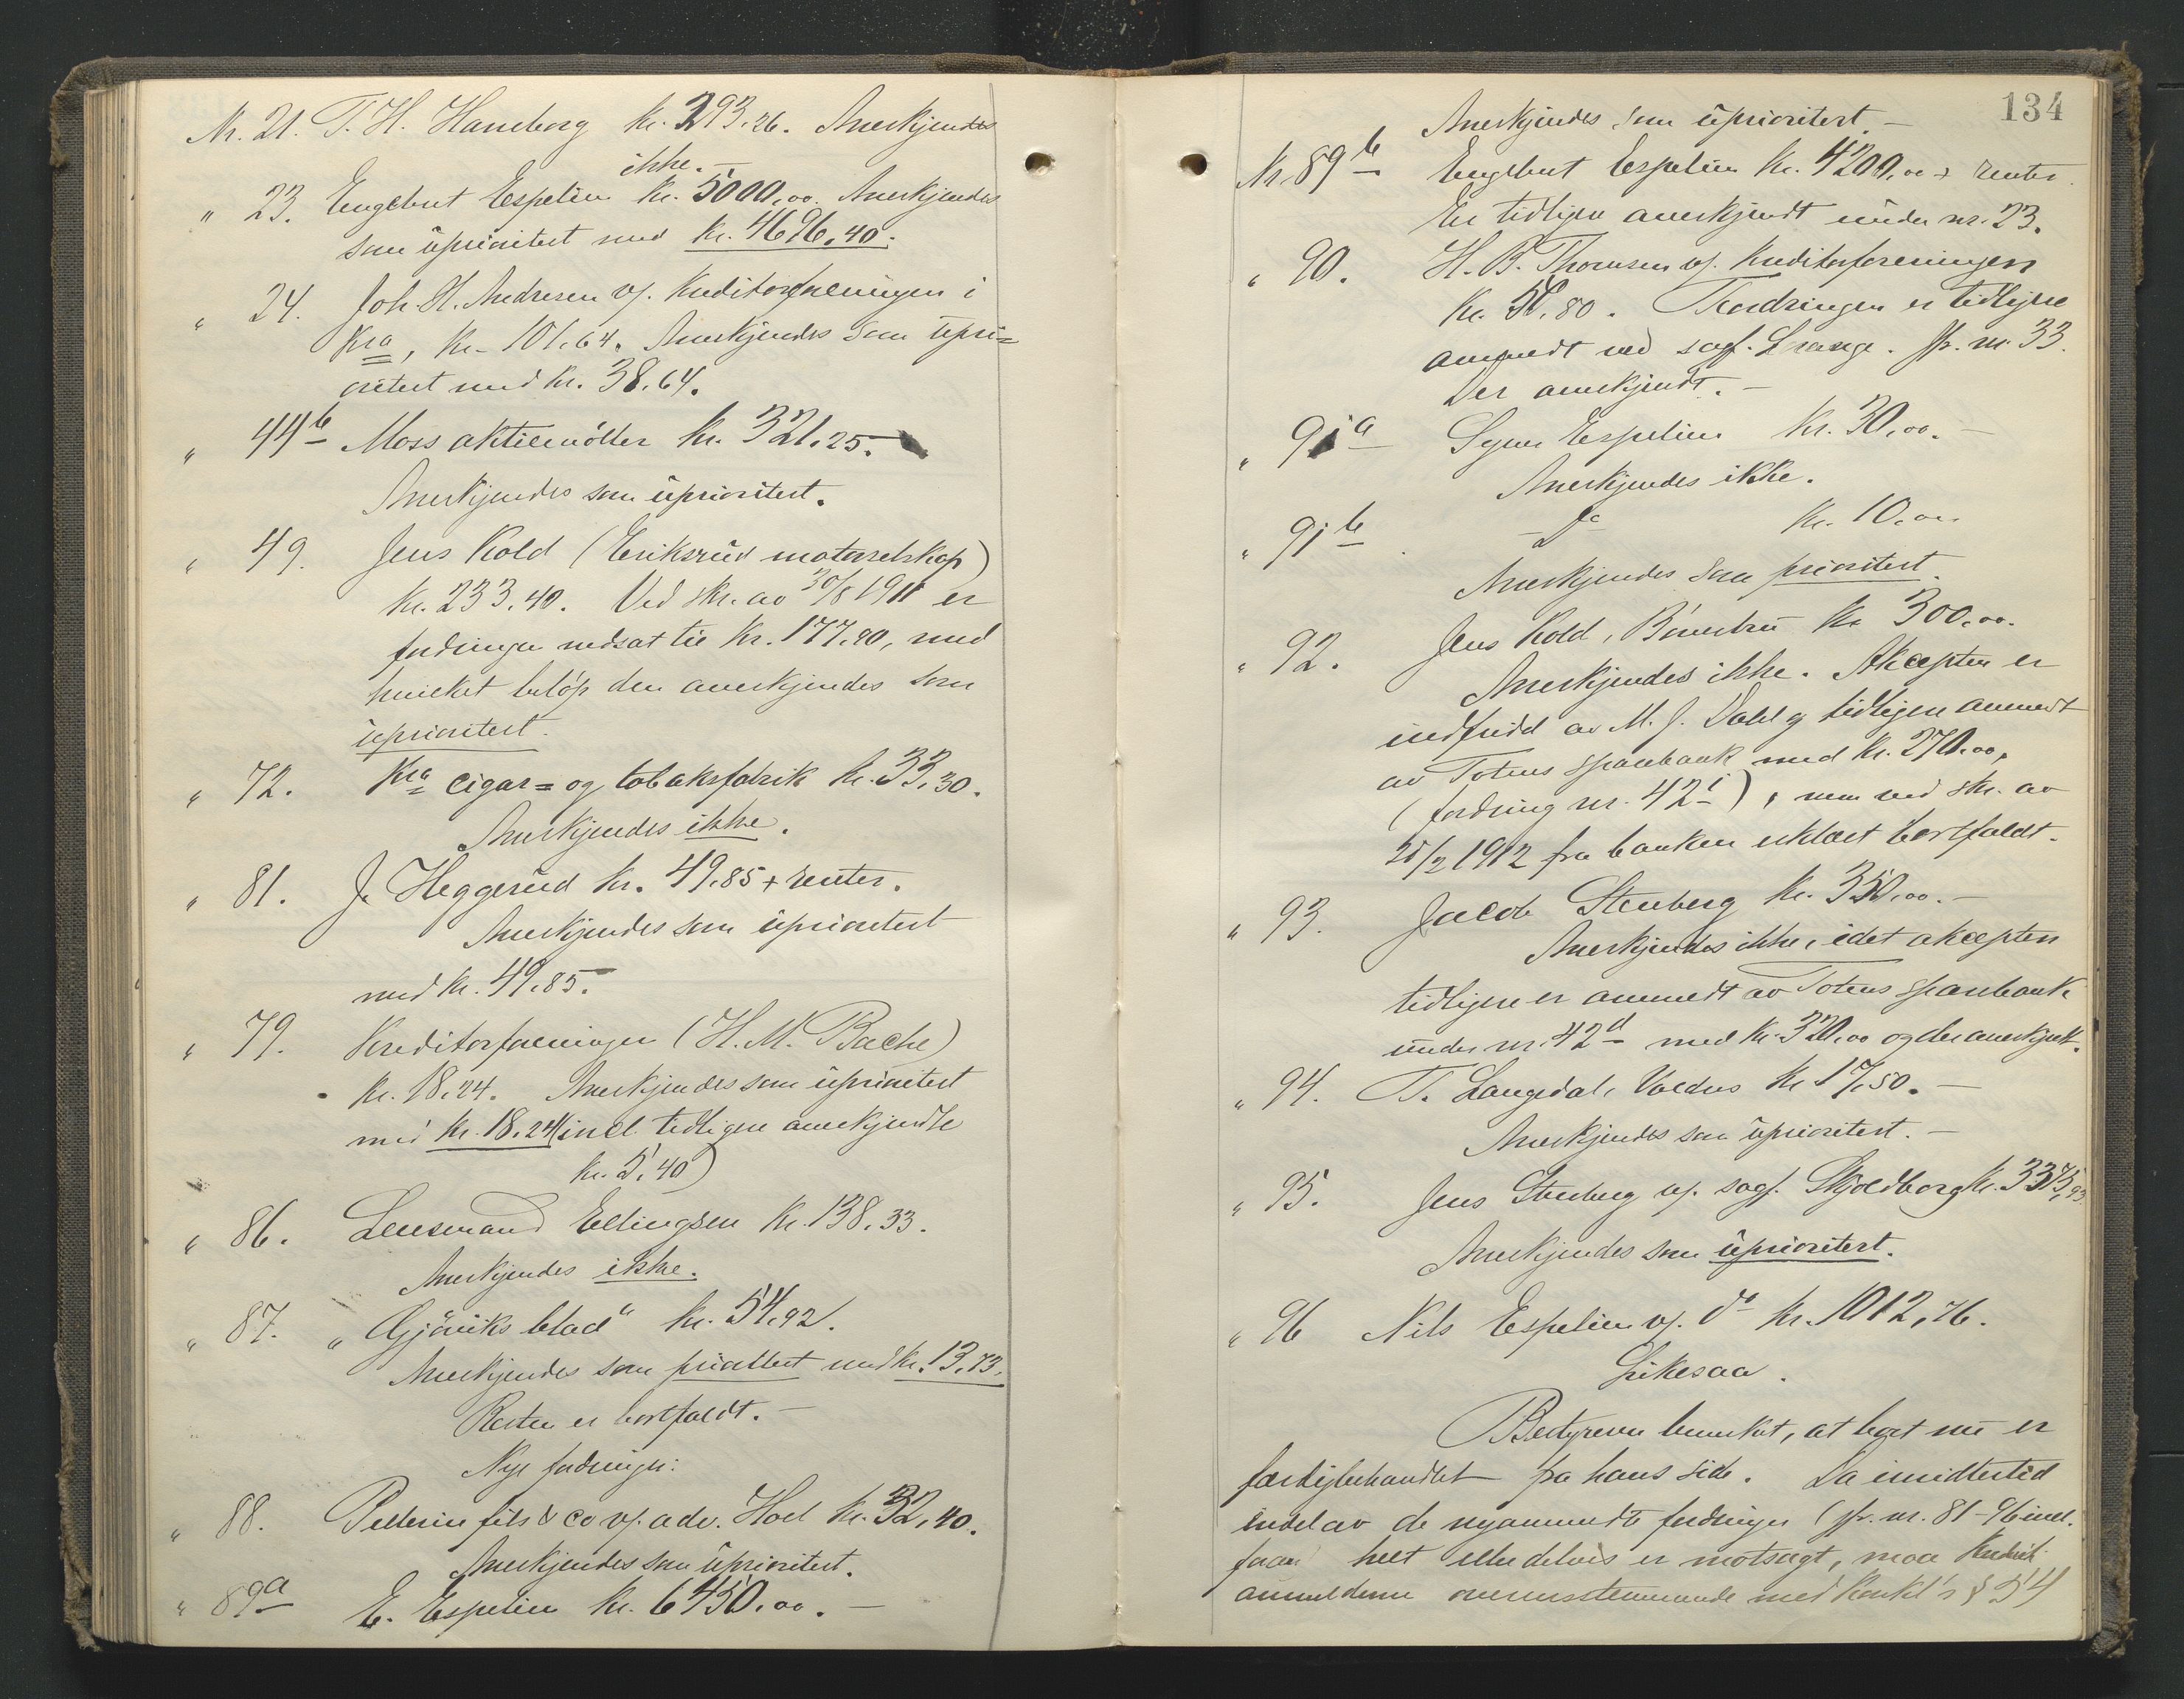 Nr. 21. T. H. Haneborg kr. 393.26. Anerkjendes
ikke. —
" 23. Engebret Espelien kr. 5000,00. Anerkjendes
som uprioritert med kr. 4696,40.
" 24. Joh. H. Andresen v/. Kreditorforeningen i
Kra, kr. 101.64. Anerkjendes som upri=
oritert med kr. 38.64.
" 44 b Moss aktiemöller kr. 321.25.
Anerkjendes som uprioritert.
" 49. Jens Kold (Eriksrud motorselskap)
kr. 233.40. Ved skr. av 30/8 1911 er
fordringen nedsat til kr. 177.90, med
hvilket belöp den anerkjendes som
uprioritert.
" 72. Kra cigar= og tobaksfabrik kr. 33,30.
Anerkjendes ikke.
" 81. J. Heggerud kr. 49.85 + renter.
Anerkjendes som uprioritert
med kr. 49.85.
" 79. Kreditorforeningen (H. M. Bache)
kr. 18.24. Anerkjendes som uprioritert
med kr. 18.24 (incl. tidligere anerkjendte
kr. 5,40)
" 86. Lensmand Ellingsen kr. 138.33.
Anerkjendes ikke.
" 87. "Gjöviks blad" kr. 54,92.
Anerkjendes som prioritert med kr. 13,73.
Resten er bortfaldt. —
Nye fordringer:
" 88. Pellerin fils & co v/. adv. Hoel kr. 32,40.
Anerkjendes som uprioritert.
" 89 a E. Espelien kr. 6450.00. —
134
Anerkjendes som uprioritert. —
Nr. 89 b Engebret Espelien kr. 4200,00 + renter.
Er tidligere anerkjendt under nr. 23.
" 90. H. B. Thomsen v/. Kreditorforeningen
kr. 80. Fordringen er tidligere
anmeldt ved sagf. Lorange. Jfr. nr. 33.
Der anerkjendt. —
" 91 a Signe Espelien kr. 30,00. —
Anerkjendes ikke.
" 91 b Do kr. 10,00
Anerkjendes som prioritert.
" 92. Jens Kold, Bönsbru kr 300,00.
Anerkjendes ikke. Akcepten er
indfridd av M. J. Dahl og tidligere anmeldt
av Totens sparebank med kr. 270,00,
(fordring nr. 42 i), men ved skr. av
21/2 1912 fra banken erklært bortfaldt.
" 93. Jacob Stenberg kr. 350,00. —
Anerkjendes ikke, idet akcepten
tidligere er anmeldt av Totens sparebank
under nr. 42 d med kr. 320,00 og der anerkjendt.
" 94. T. Langedal, Valdres kr 17,50. —
Anerkjendes som uprioritert. —
" 95. Jens Stenberg v/. sagf. Skjoldborg kr. 3375,93
Anerkjendes som uprioritert.
" 96 Nils Espelien v/. do kr. 1012,76.
Likesaa.
Bestyreren bemerket, at boet nu er
færdigbehandlet fra hans side. Da imidlertid
endel av de nyanmeldte fordringer (jfr. nr. 81-96 incl.
foran helt eller delvis er motsagt, maa
anmelderne overensstemmende med konkl's § 54